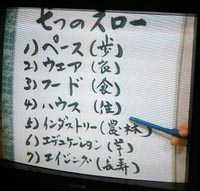 七つのスロー
1) ペース (歩)
2) ウエア (衣)
3) フード (食)
4) ハウス (住)
5) インダストリー (農・林)
6) エデュケーション (学)
7) エイジング (長寿)